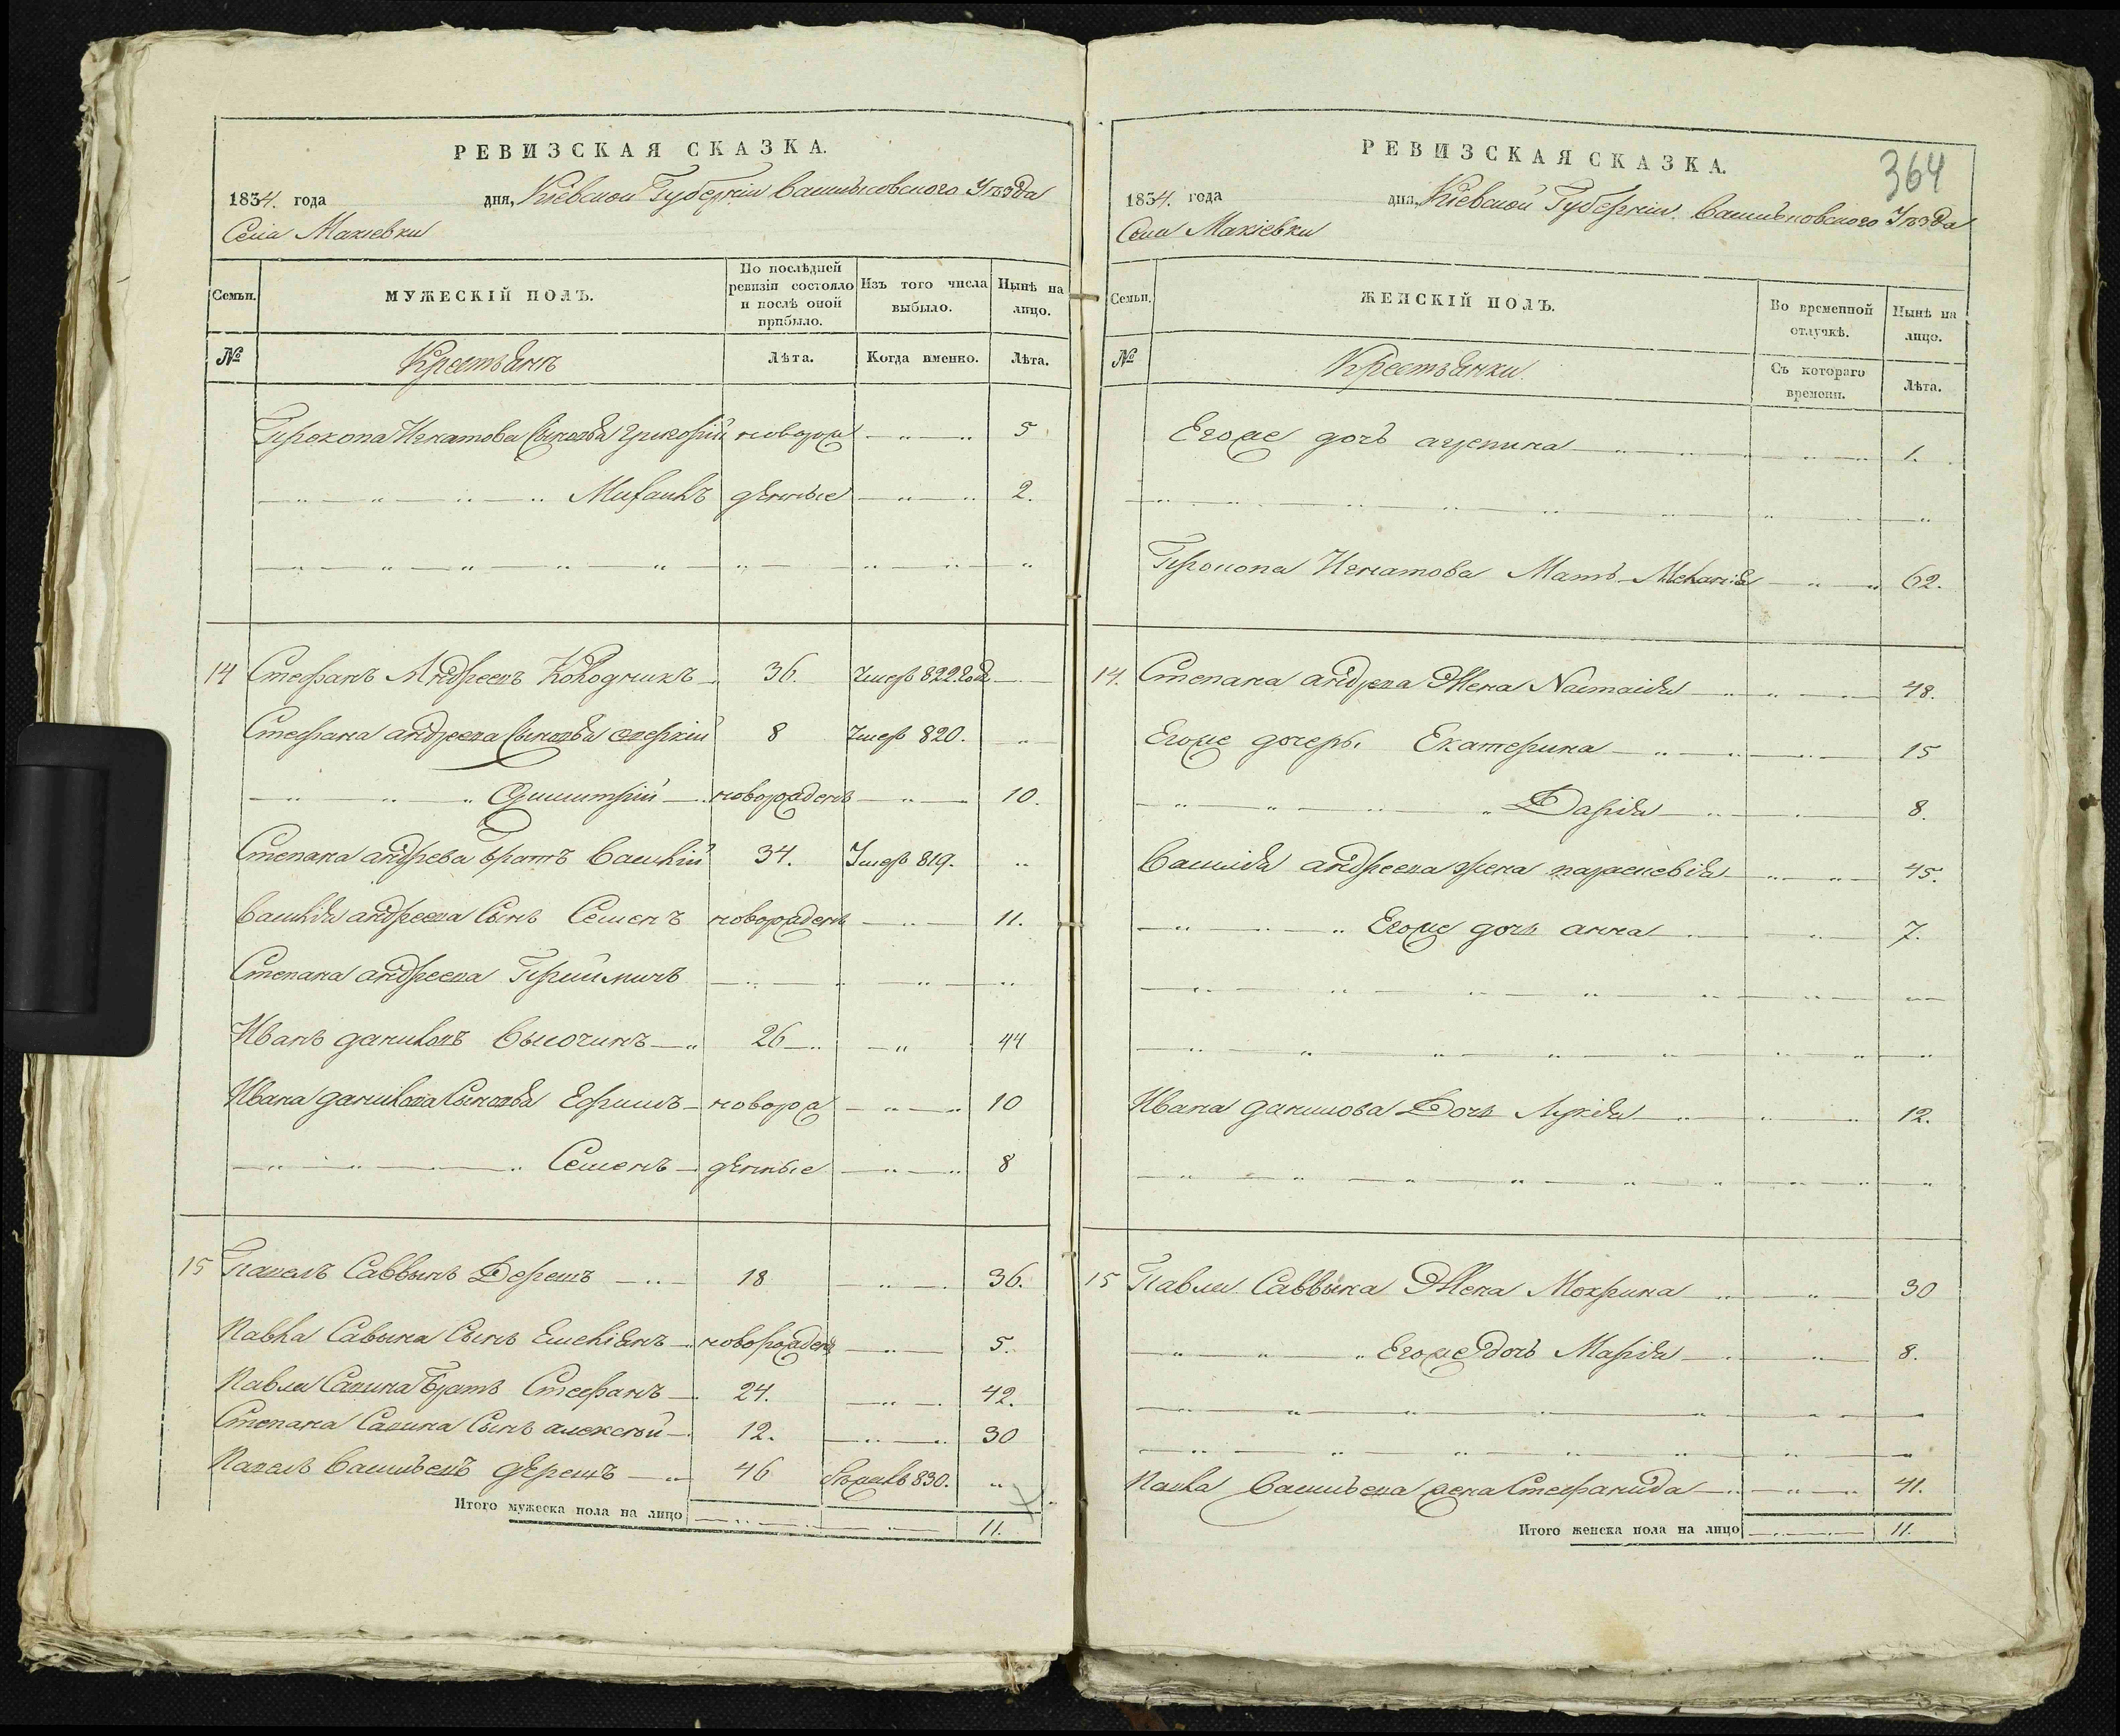 РЕВИЗСКАЯ СКАЗКА.
1834. года дня, Кіевской Губерніи Васильковского Уѣзда
Села Макіевки
Семьи. МУЖЕСКІЙ ПОЛЪ. По послѣдней ревизіи состояло и послѣ оной прибыло. Изъ того числа выбыло. Нынѣ на лицо.
№ Крестьянъ Лѣта. Когда именно. Лѣта.
Прокопа Игнатова Сыновья Григорій новорож 5
Михаилъ денные 2.
14 Стефанъ Андреевъ Колодникъ 36. Умер 822. Года
Стефана андреева Сыновья 8 Умер 820.
Димитрій новорожденъ 10.
Степана андрева братъ Василій 34. Умер 819.
Василія андреева Сынъ Семенъ новорожденъ 11.
Степана андреева Приймичъ
Иванъ даниловъ 26 44
Ивана данилова Сыновья Ефимъ новорож 10
Семенъ денные 8
15 Павелъ Саввинъ Дерешъ 18 36.
Павла Савына Сынъ Емеліянъ новорожденъ 5.
Павла Савина братъ Стефанъ 24. 42.
Степана Савина Сынъ алексѣй 12. 30
Павелъ Васильевъ дерешъ 46 830.
Итого мужеска пола на лицо 11.
РЕВИЗСКАЯ СКАЗКА.
364
1834. года дня, Кіевской Губерніи Васильковского Уѣзда
Села Макіевки
Семьи. ЖЕНСКІЙ ПОЛЪ. Во временной отлучкѣ. Нынѣ на лицо.
№ Крестьянки. Съ котораго времени. Лѣта.
Егоже дочь агрепина 1.
Прокопа Игнатова Мать Меланія 62.
14. Степана андреева Жена Настасія 48.
Егоже дочеры Екатерина 15
Дарія 8.
Василія андреева жена параскевія 45.
Егоже дочь анна 7.
Ивана данилова Дочь Лукія 12.
15 Павла Саввына Жена Мокрина 30
Егоже дочь Марія 8.
Павла Васильева жена Стефанида 41.
Итого женска пола на лицо 11.